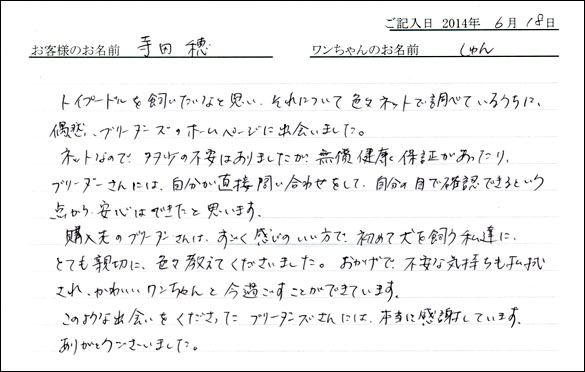 ご記入日 2014年 6月 18日
お客様のお名前 寺田 穂 ワンちゃんのお名前 しゅん
トイプードルを飼いたいなと思い、それについて色々ネットで調べているうちに、
偶然、ブリーダーズのホームページに出会いました。
ネットなので、多少の不安はありましたが、無償健康保証があったり、
ブリーダーさんには、自分が直接問い合わせをして、自分の目で確認できるという
点から、安心はできたと思います。
購入先のブリーダーさんは、すごく感じのいい方で、初めて犬を飼う私達に、
とても親切に、色々教えてくださいました。おかげで、不安な気持ちも払拭
され、かわいいワンちゃんと今過ごすことができています。
このような出会いをくださった ブリーダーズさんには、本当に感謝しています。
ありがとうございました。